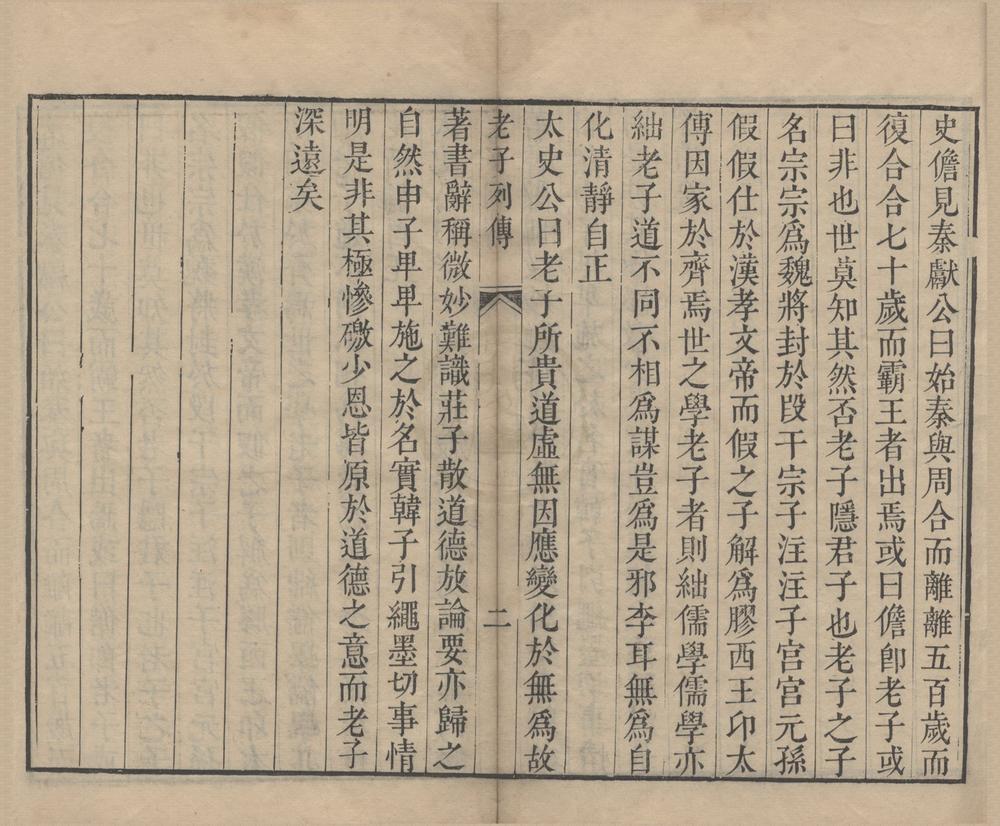 史儋見秦獻公曰始秦與周合而離離五百歲而
復合合七十歲而霸王者出焉或曰儋卽老子或
曰非也世莫知其然否老子隱君子也老子之子
名宗宗爲魏將封於段干宗子注注子宮宮元孫
假假仕於漢孝文帝而假之子解爲膠西王卬太
傅因家於齊焉世之學老子者則絀儒學儒學亦
絀老子道不同不相爲謀豈爲是邪李耳無爲自
化清靜自正
太史公曰老子所貴道虛無因應變化於無爲故
老子列傳 二
著書辭稱微妙難識莊子散道德放論要亦歸之
自然申子卑卑施之於名實韓子引繩墨切事情
明是非其極慘礉少恩皆原於道德之意而老子
深遠矣